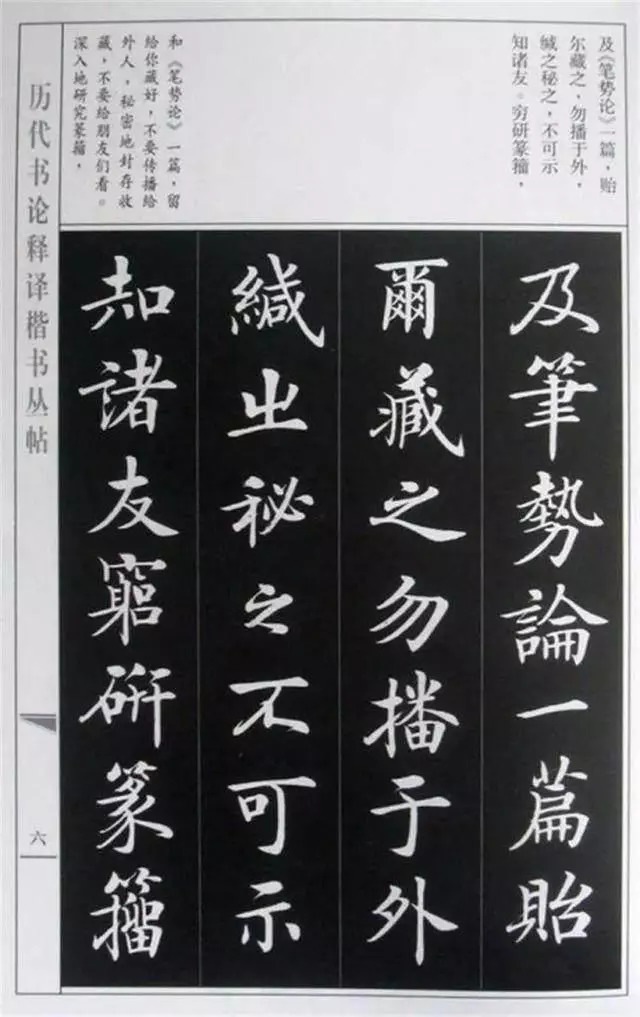 及《笔势论》一篇，贻
尔藏之，勿播于外，
缄之秘之，不可示
知诸友。穷研篆籀，
和《笔势论》一篇，留
给你藏好，不要传播给
外人，秘密地封存收
藏，不要给朋友们看。
深入地研究篆籀，
及筆勢論一篇貽
爾藏之勿播于外
緘之秘之不可示
知諸友窮研篆籀
历代书论释译楷书丛帖
六